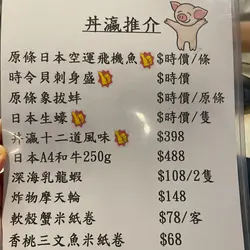 丼瀛推介
原條日本空運飛機魚 $時價/條
時令貝刺身盛 $時價
原條象拔蚌 $時價/原條
日本生蠔 $時價/隻
丼瀛十二道風味 $398
日本A4和牛250g $488
深海乳龍蝦 $108/2隻
炸物摩天輪 $148
軟殼蟹米紙卷 $78/客
香桃三文魚米紙卷 $68